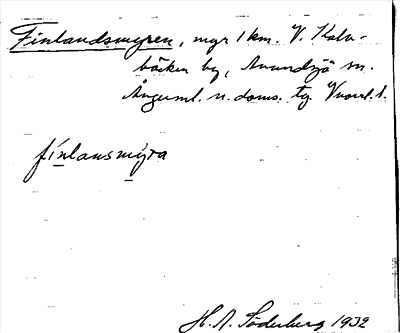 Finlandsmyren, myr 1 km. V. Kalv-
bäcken by, Anundsjö sn.
Ångerml. n. doms. tg. Vnorrl. l.
finlansmyra
H. A. Söderberg 1932